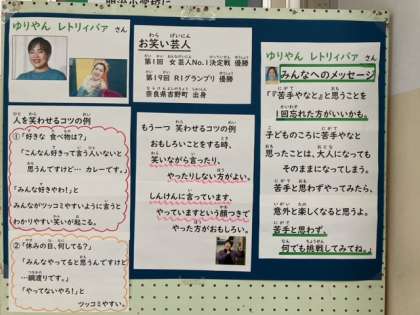 ゆりやん レトリィバァ さん
お笑い芸人
第1回 女芸人No.1決定戦 優勝
第19回 R1グランプリ 優勝
奈良県吉野町 出身
人を笑わせるコツの例
①「好きな 食べ物は？」
「こんなん好きって言う人いないと
思うんですけど… カレーです。」
「みんな好きやわ！」と
みんながツッコミやすいように言うと
わかりやすい笑いが起こる。
②「休みの日、何してる？」
「みんなやってると思うんですけど
…綱渡りです。」
「やってないやろ！」と
ツッコミやすい。
もう一つ 笑わせるコツの例
おもしろいことをする時、
笑いながら言ったり、
やったりしない方がよい。
しんけんに言ってます、
やっていますという顔つきで
やった方がおもしろい。
ゆりやん レトリィバァ さん
みんなへのメッセージ
「『苦手やなと』と思うことを
1回忘れた方がいいかも。
子どものころに苦手やなと
思ったことは、大人になっても
そのままになってしまう。
苦手と思わずやってみたら、
意外と楽しくなると思うよ。
苦手と思わず、
何でも挑戦してみてね。」